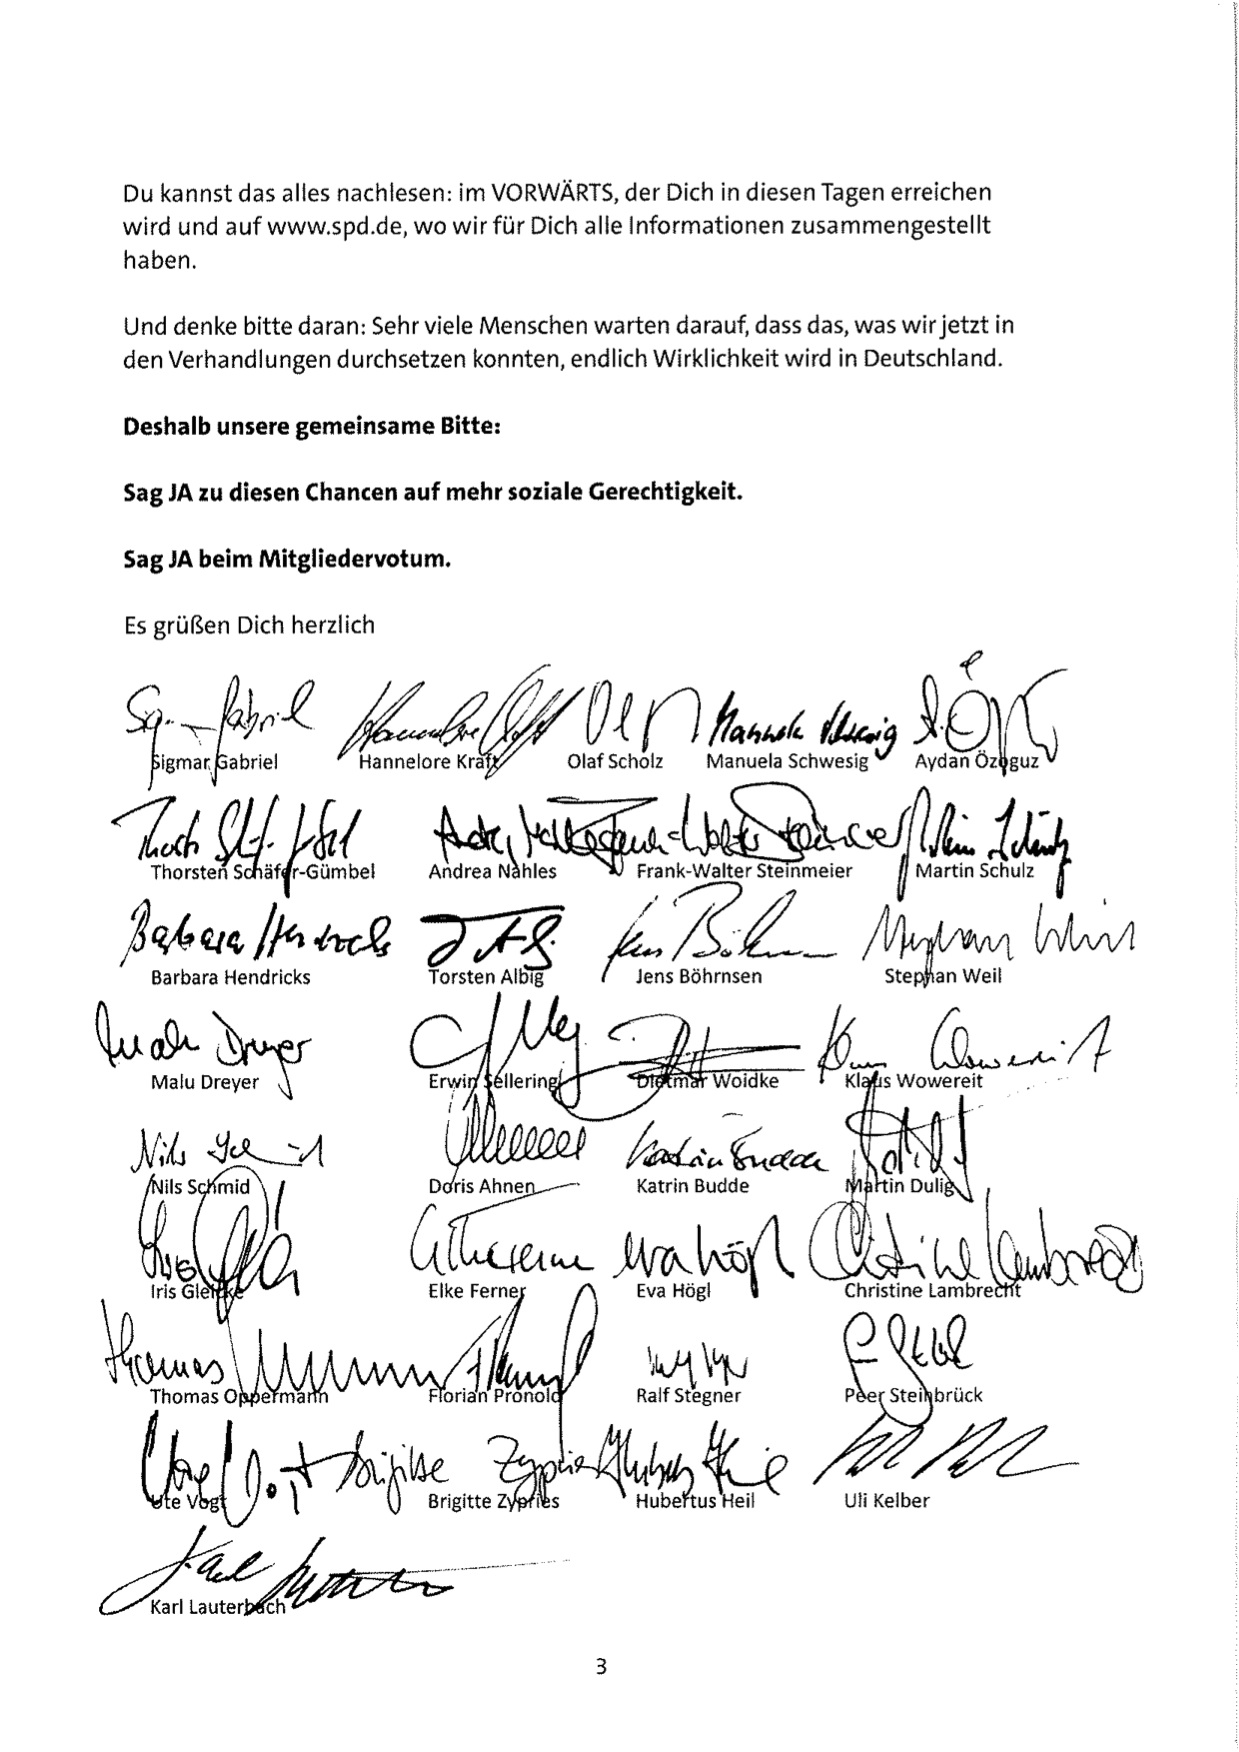 Du kannst das alles nachlesen: im VORWÄRTS, der Dich in diesen Tagen erreichen
wird und auf www.spd.de, wo wir für Dich alle Informationen zusammengestellt
haben.
Und denke bitte daran: Sehr viele Menschen warten darauf, dass das, was wir jetzt in
den Verhandlungen durchsetzen konnten, endlich Wirklichkeit wird in Deutschland.
Deshalb unsere gemeinsame Bitte:
Sag JA zu diesen Chancen auf mehr soziale Gerechtigkeit.
Sag JA beim Mitgliedervotum.
Es grüßen Dich herzlich
Sigmar Gabriel Hannelore Kraft Olaf Scholz Manuela Schwesig Aydan Özoguz
Thorsten Schäfer-Gümbel Andrea Nahles Frank-Walter Steinmeier Martin Schulz
Barbara Hendricks Torsten Albig Jens Böhrnsen Stephan Weil
Malu Dreyer Erwin Sellering Dietmar Woidke Klaus Wowereit
Nils Schmid Doris Ahnen Katrin Budde Martin Dulig
Iris Gleicke Elke Ferner Eva Högl Christine Lambrecht
Thomas Oppermann Florian Pronold Ralf Stegner Peer Steinbrück
Ute Vogt Brigitte Zypries Hubertus Heil Uli Kelber
Karl Lauterbach
3